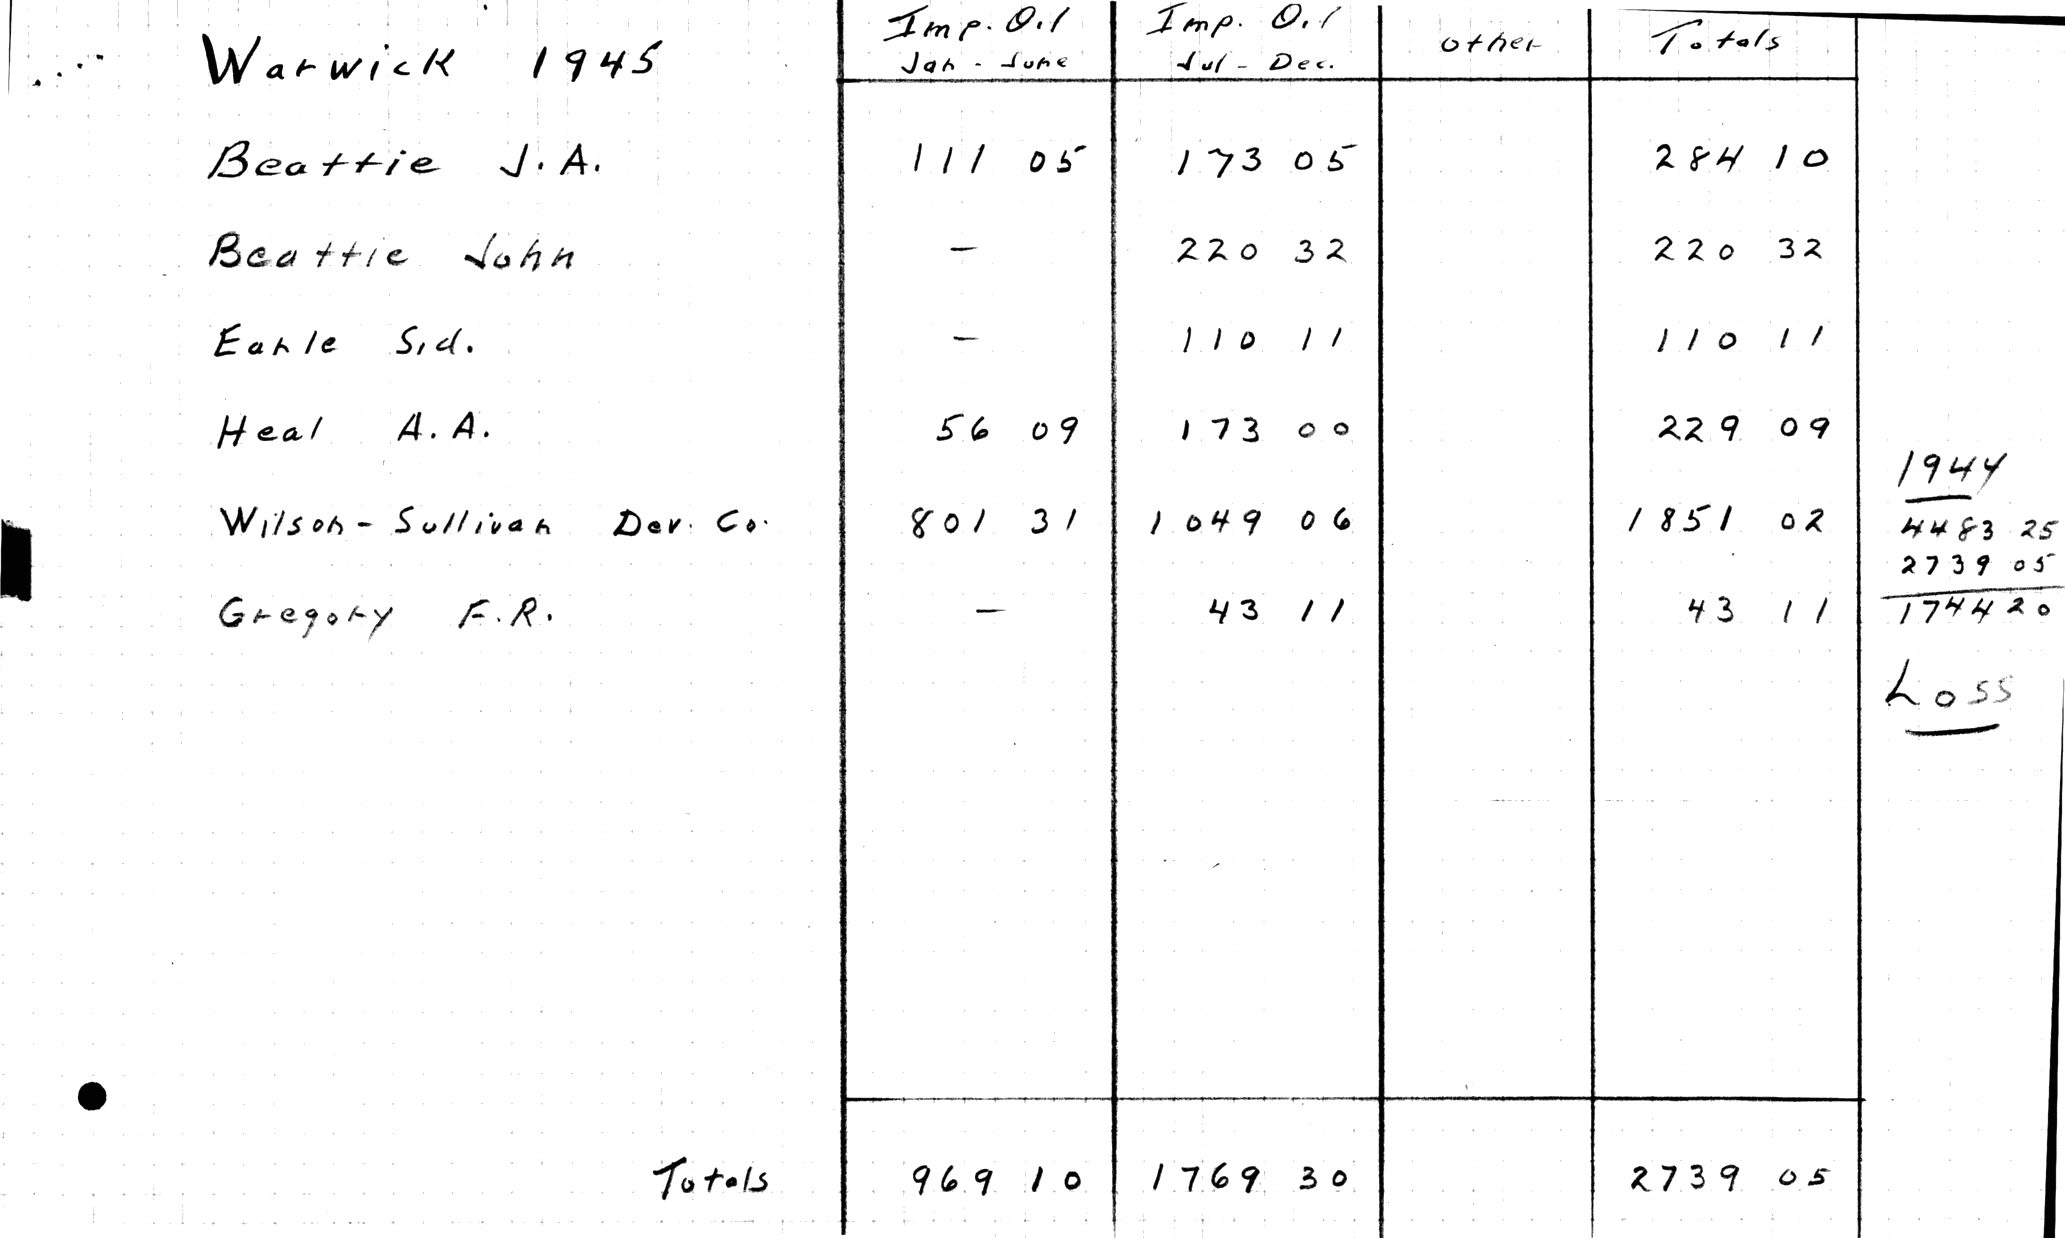 Warwick 1945 Imp. Oil Jan - June Imp. Oil Jul - Dec. Other Totals
Beattie J. A. 111 05 173 05 284 10
Beattie John - 220 32 220 32
Earle Sid. - 110 11 110 11
Heal A. A. 56 09 173 00 229 09
Wilson - Sullivan Dev. Co. 801 31 1049 06 1851 02
Gregory F. R. - 43 11 43 11
Totals 969 10 1769 30 2739 05
1944
4483 25
2739 05
1744 20
Loss